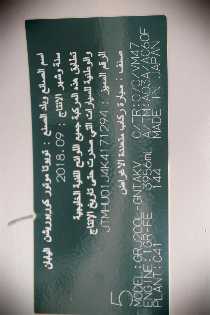 اسم الصانع وبلد الصنع : تويوتا موتور كوربوريشن اليابان
سنة وشهر الانتاج : 2018.09
تطابق هذه المركبة جميع اللوائح الفنية الخليجية
والوطنية للسيارات التي صدرت حتى تاريخ الإنتاج
الرقم المميز : JTMHU01J4K4171294
صنف : سيارة ركاب متعددة الاغراض
5
MODEL:GRJ200L-GNTAKV C/TR:070/VM47
ENGINE:1GR-FE 3956mL A/TM:A03A/AC60F
PLANT:C41 144 MADE IN JAPAN